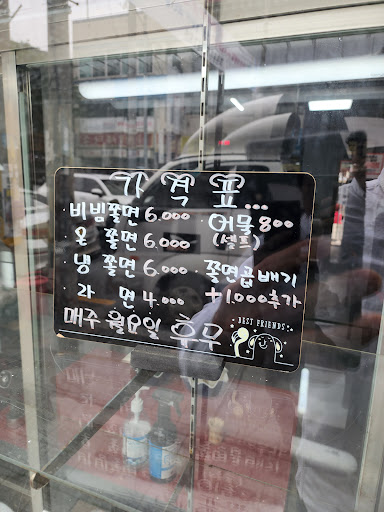 가격표...
비빔쫄면 6.000 어묵 800
온 쫄면 6.000 (셀프)
냉 쫄면 6.000 쫄면곱배기
라 면 4.000 +1.000추가
매주 월요일 휴무
BEST FRIENDS